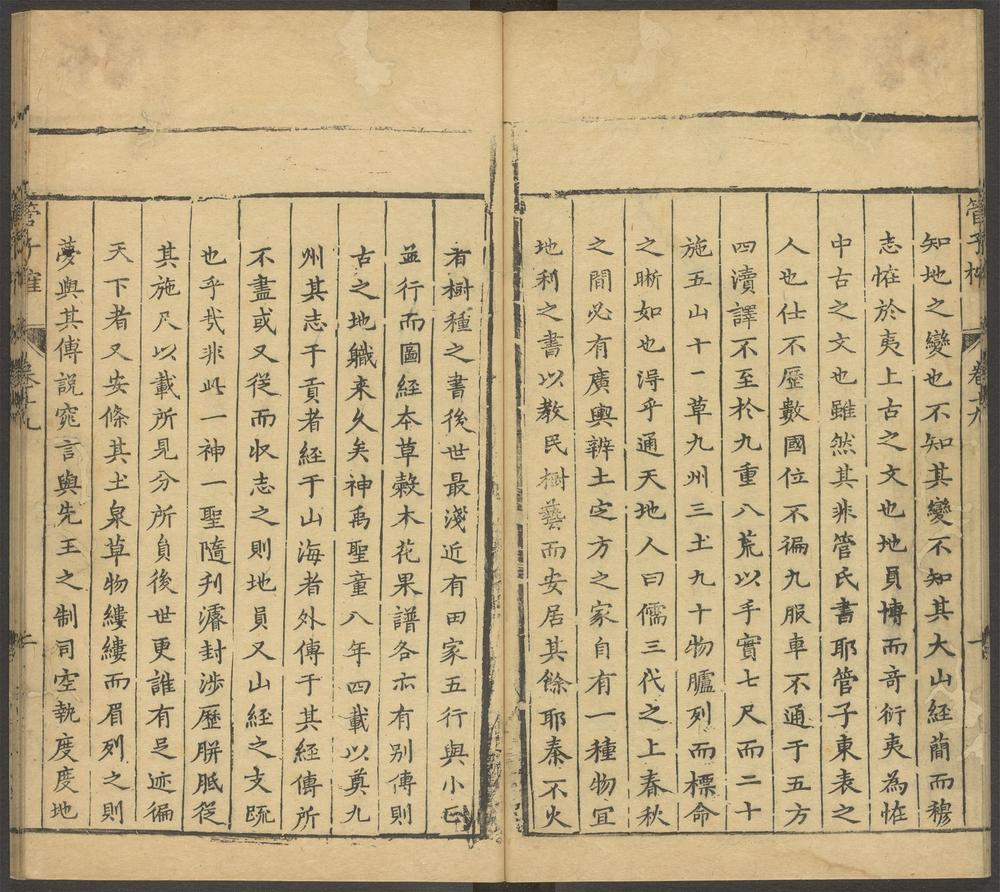 管子榷
卷十九
知地之變也不知其變不知其大山經簡而穆
志恠於夷上古之文也地員博而奇衍夷為恠
中古之文也雖然其非管氏書耶管子東表之
人也仕不歷數國位不徧九服車不通于五方
四瀆譯不至於九重八荒以手實七尺而二十
施五山十一草九州三土九十物臚列而標命
之晰如也淂乎通天地人曰儒三代之上春秋
之間必有廣輿辨土㝎方之家自有一種物宜
地利之書以教民樹藝而安居其餘耶秦不火
者樹種之書後世最淺近有田家五行與小正
並行而圖經本草穀木花果譜各亦有别傳則
古之地軄来久矣神禹聖童八年四載以奠九
州其志于貢者經于山海者外傳于其經傳所
不盡或又從而收志之則地員又山經之支䟽
也乎㢤非此一神一聖隨刋濬封涉歷胼胝從
其施尺以載所見分所員後世更誰有𠯁迹徧
天下者又安條其土泉草物縷縷而眉列之則
夢與其傳說䆓言與先王之制司空執度度地
管子榷
卷十九